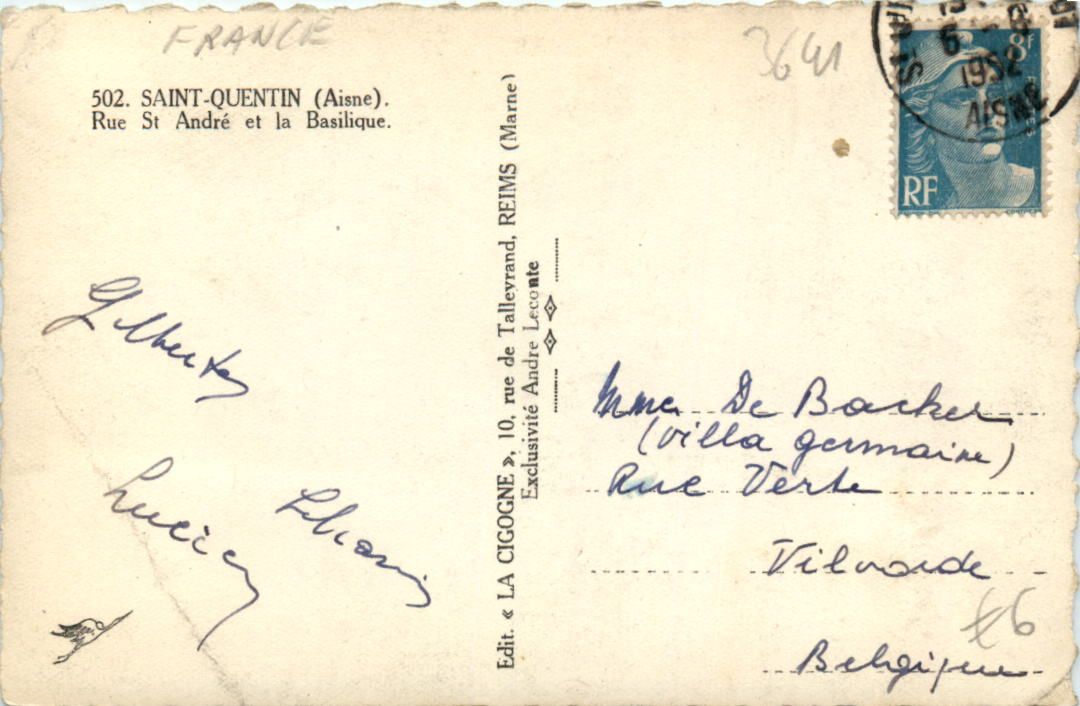 FRANCE
3641
502. SAINT-QUENTIN (Aisne).
Rue St André et la Basilique.
1952
AISNE
8F
RF
Edit. « LA CIGOGNE », 10, rue de Talleyrand, REIMS (Marne)
Exclusivité André Leconte
Gilberte
Lucien
Mme De Backer
(villa germaine)
Rue Verte
Vilvorde
Belgique
£6